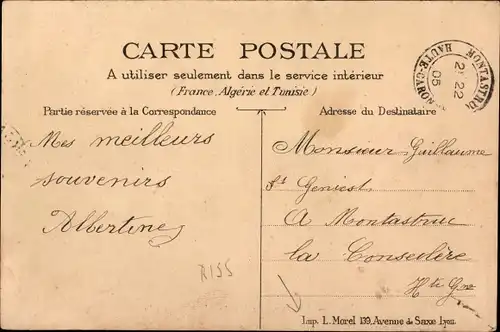 CARTE POSTALE
A utiliser seulement dans le service intérieur
(France, Algérie et Tunisie)
Partie réservée à la Correspondance
Mes meilleurs
souvenirs
Albertine
R155
Adresse du Destinataire
Monsieur Guillaume
St Geniest
A Montastruc
la Conseillère
Hte Gne
Imp. L. Morel 139, Avenue de Saxe Lyon.
MONTASTRUC
22
05
HAUTE-GARONNE